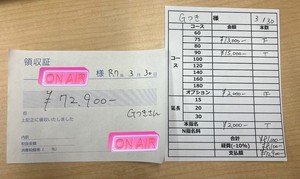 領収証
ON AIR
様 R7年 3月 30日
¥72,900-
Gつきさん
上記正に領収いたしました
内訳
ON AIR
Gつき 様 3/30
コース 金額 本数
60
75 ¥13,000- T
80
90 ¥15,000- T
100
120
140
180
オプション ¥2,000- T
延長 15
20
30
本指名 ¥2,000- T
N指名料
総合計 ¥81,000-
経費(-10%) ¥8,100-
支払額 ¥72,900-